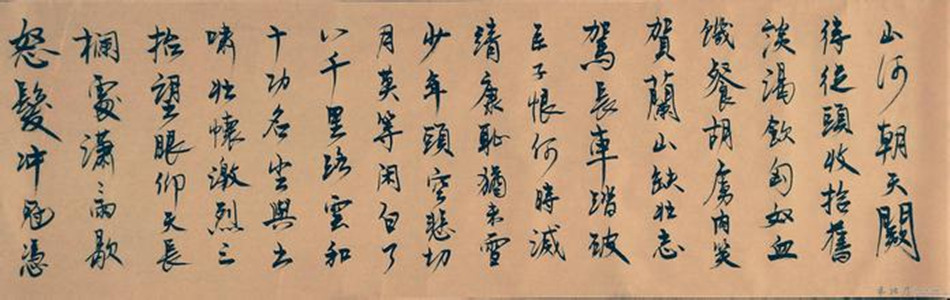 怒髮冲冠憑
欄處瀟〻雨歇
抬望眼仰天長
嘯壯懷激烈三
十功名尘與土
八千里路雲和
月莫等闲白了
少年頭空悲切
靖康恥猶未雪
臣子恨何時滅
駕長車踏破
賀蘭山缺壯志
饑餐胡虜肉笑
談渴飲匈奴血
待從頭收拾舊
山河朝天闕